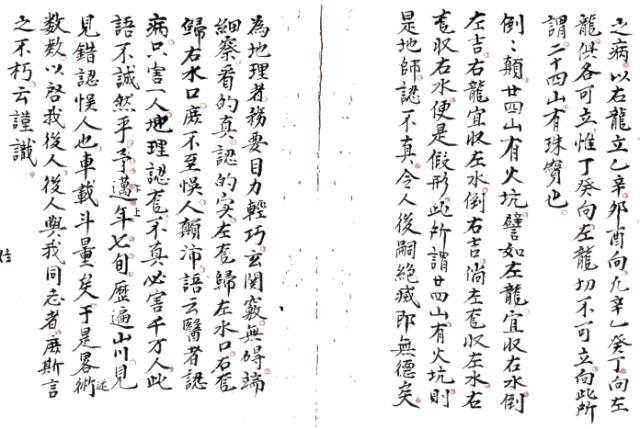 之病以右龍立乙辛卯酉向凢辛乙癸丁向左
龍俱各可立惟丁癸向左龍切不可立向此所
謂二十四山有珠寶也
倒〻顛廿四山有火坑譬如左龍宜収右水倒
左吉右龍宜収左水倒右吉倘左䨇収左水右
収右水便是假形此所謂廿四山有火坑則
是地師認不真令人後嗣絶滅即無德矣
為地理者務要目力輕巧玄関竅無碍端
細察看的真認的实左歸左水口右
歸右水口庻不至悞人顛沛語云醫者認
病只害一人地理認不真必害千万人此
語不誠然乎予邁年七旬歷遍山川見
見錯認悞人也車載斗量矣于是畧術述
数款以啓我後人後人與我同志者庻斯言
之不朽云謹識